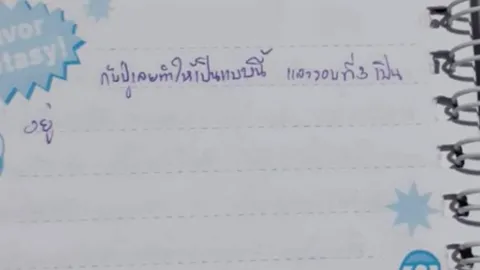 vor
ntasy!
กับปู่เลยทำให้เป็นแบบนี้ และรอบที่3 เป็น
อยู่